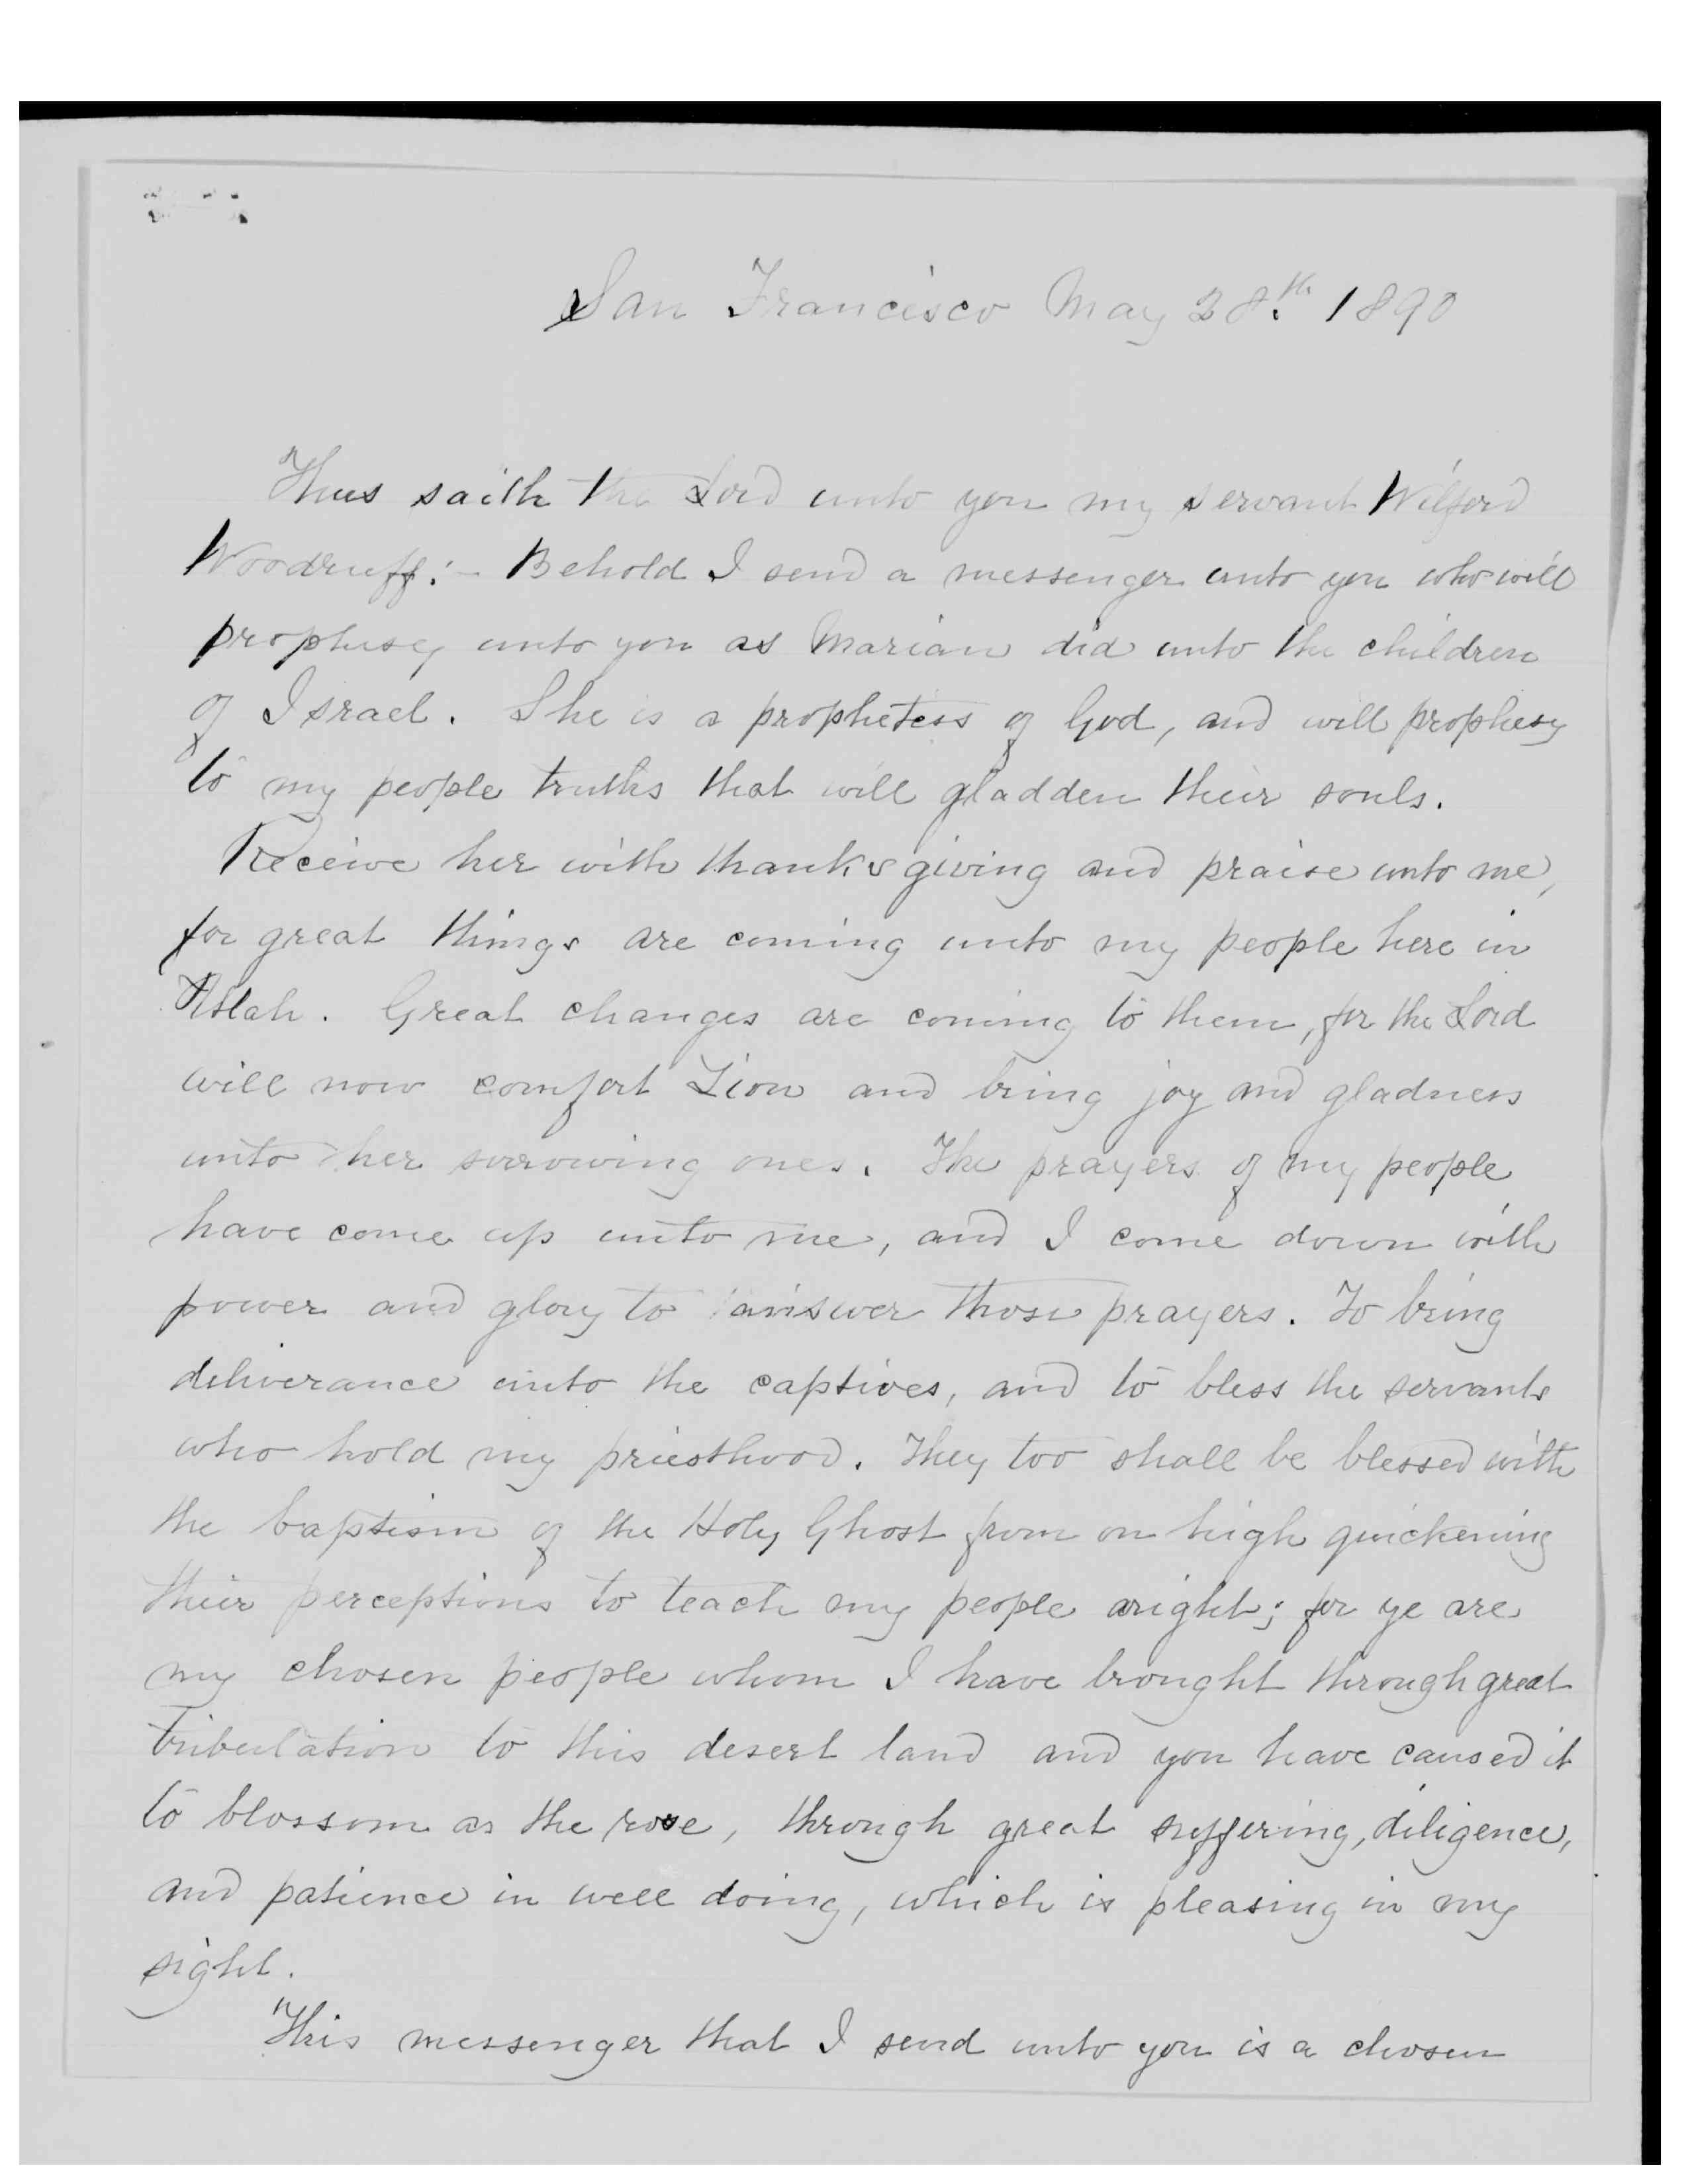 San Francisco May 28th. 1890
Thus saith the Lord unto you my servant Wilford
Woodruff:- Behold I send a messenger unto you who will
prophesy unto you as Mariam did unto the children
of Israel. She is a prophetess of God, and will prophesy
to my people truths that will gladden their souls.
Receive her with thanksgiving and praise unto me,
for great things are coming unto my people here in
Utah. Great changes are coming to them, for the Lord
will now comfort Zion and bring joy and gladness
unto her sorrowing ones. The prayers of my people
have come up unto me, and I come down with
power and glory to answer those prayers. To bring
deliverance unto the captives, and to bless the servants
who hold my priesthood. They too shall be blessed with
the baptism of the Holy Ghost from on high quickening
their perceptions to teach my people aright; for ye are
my chosen people whom I have brought through great
tribulation to this desert land and you have caused it
to blossom as the rose, through great suffering, diligence,
and patience in well doing, which is pleasing in my
sight.
This messenger that I send unto you is a chosen